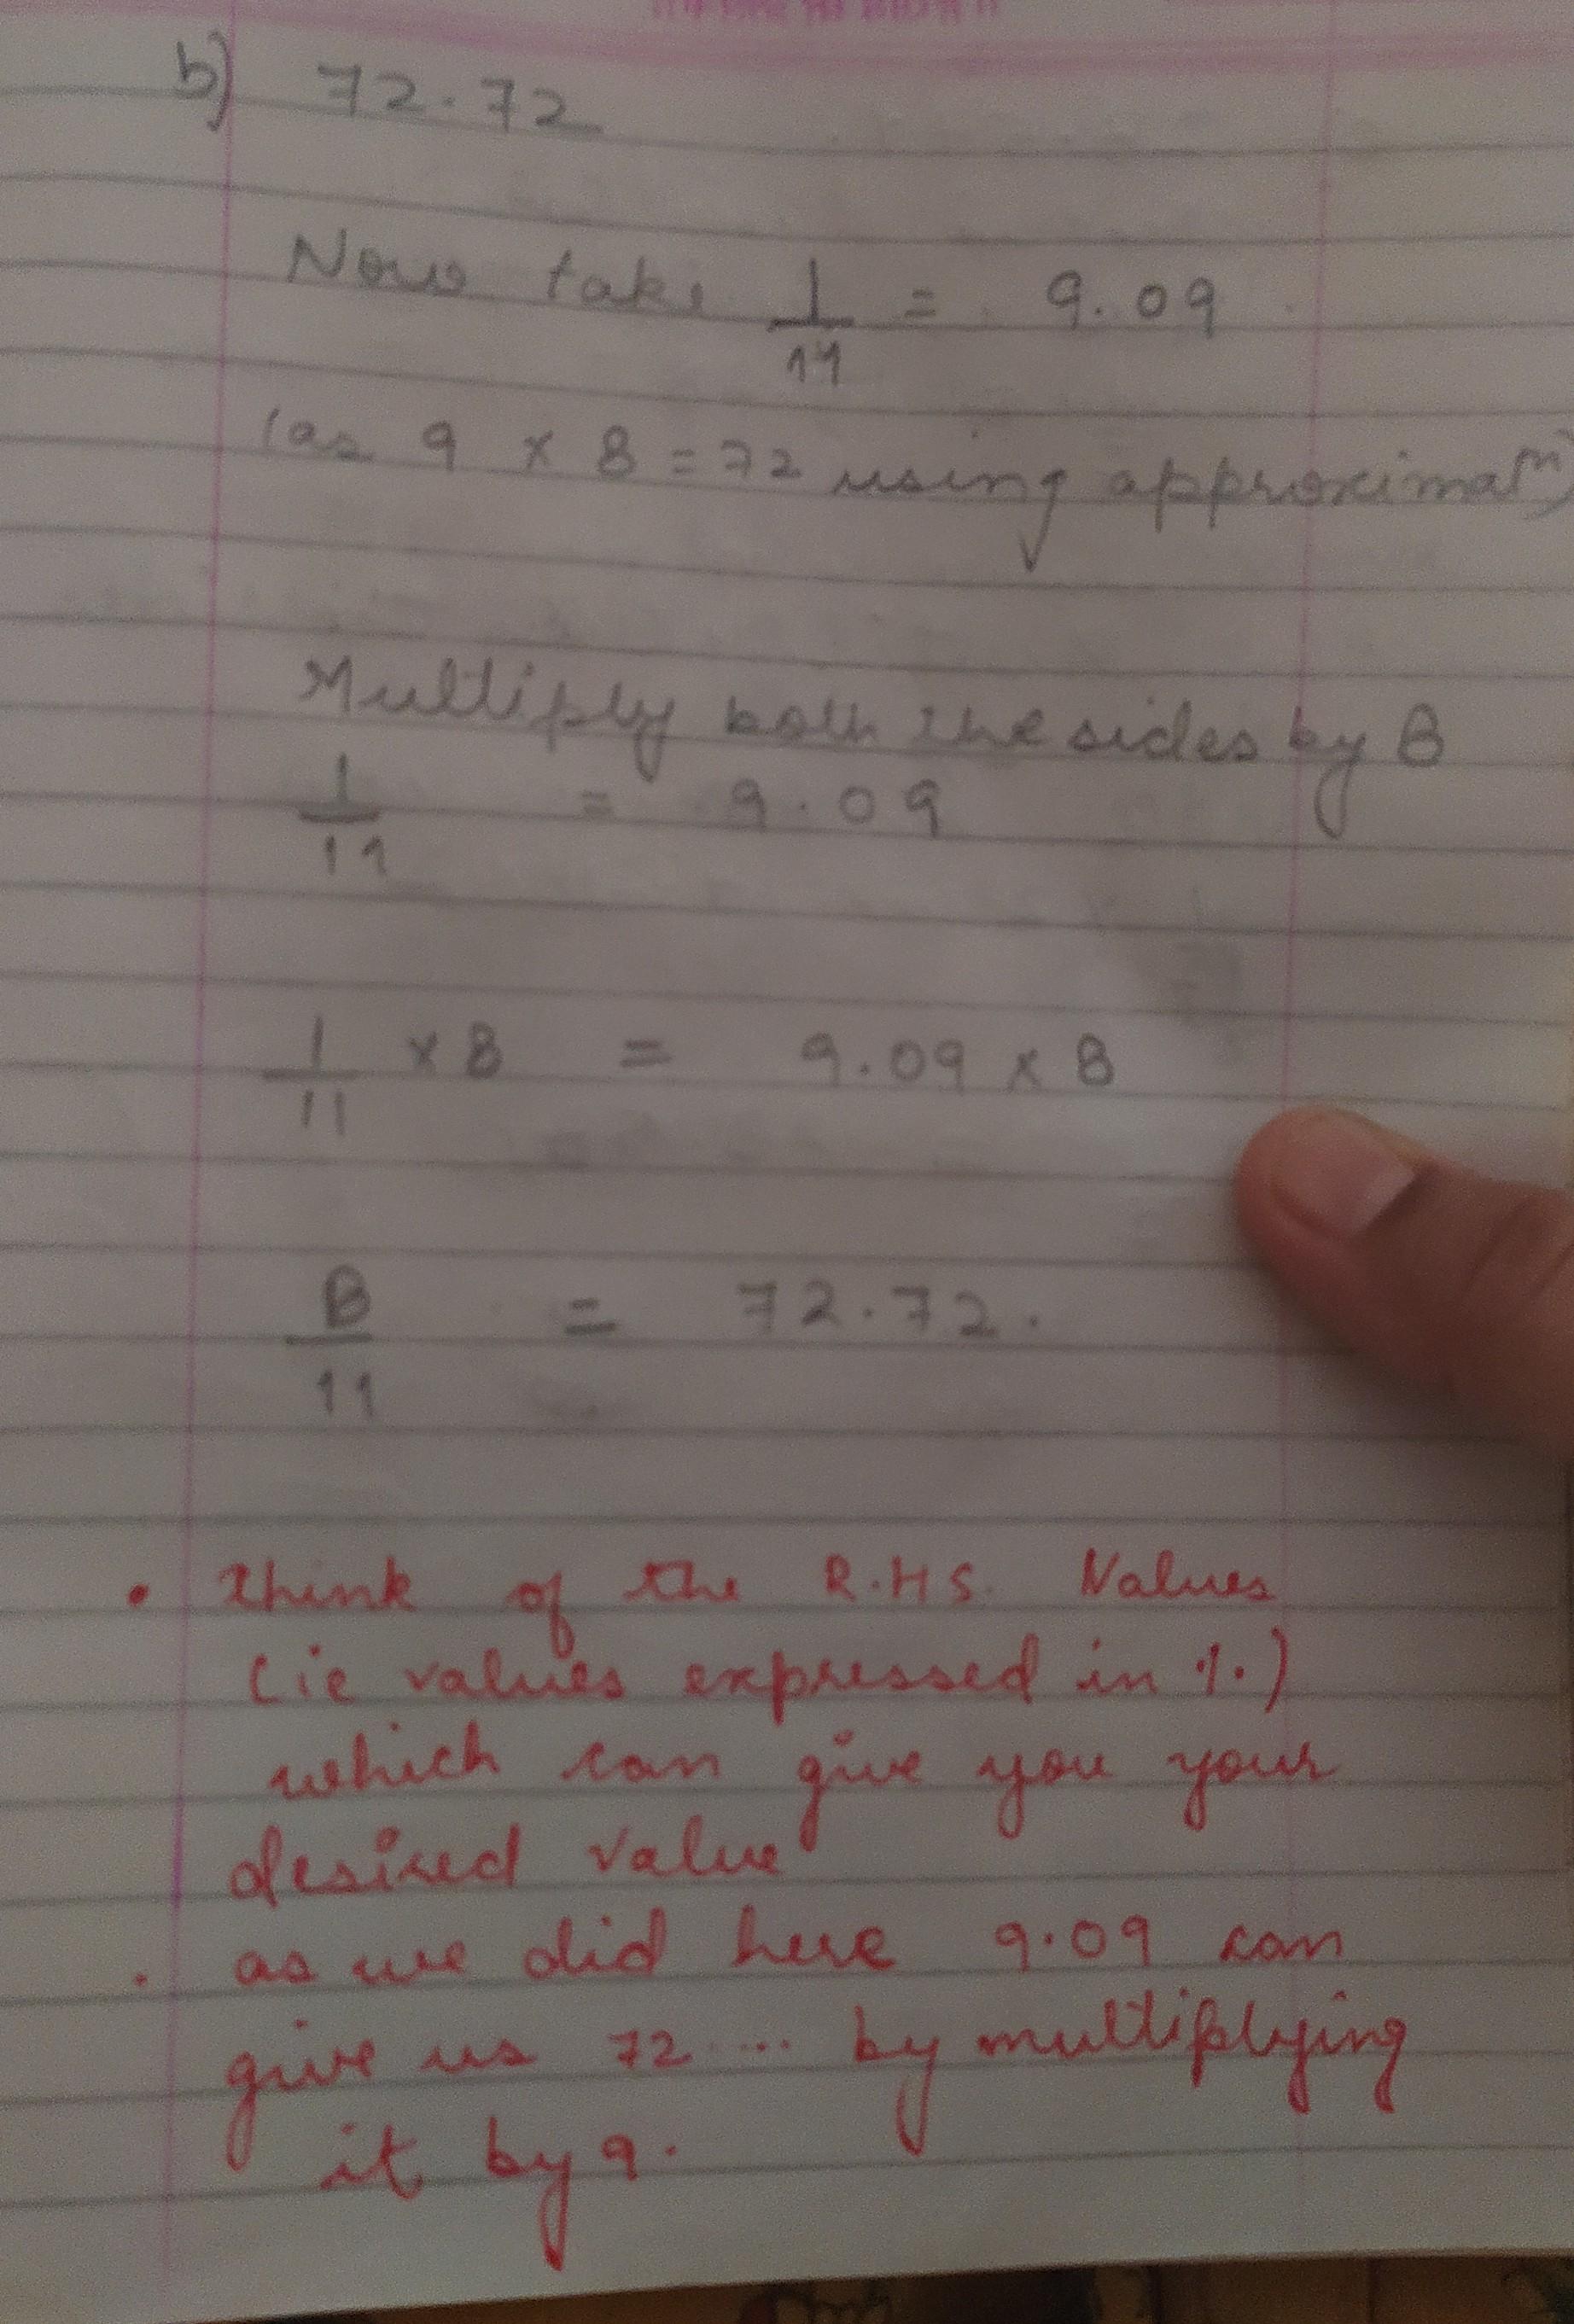 b) 72.72
Now take 1/11 = 9.09
(as 9 x 8 = 72 using approximatn)
Multiply both the sides by 8
1/11 = 9.09
1/11 x 8 = 9.09 x 8
8/11 = 72.72.
• think of the R.H.S. Values
(ie values expressed in %)
which can give you your
desired value
• as we did here 9.09 can
give us 72 ... by multiplying
it by 9.